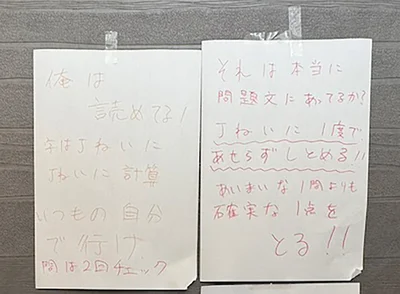 俺は
読めてる!
字はJねいに
Jねいに計算
いつもの自分
で行け
問は2回チェック
それは本当に
問題文にあってるか?
Jねいに1度で
あせらずしとめる!!
あいまいな1問よりも
確実な1点を
とる!!